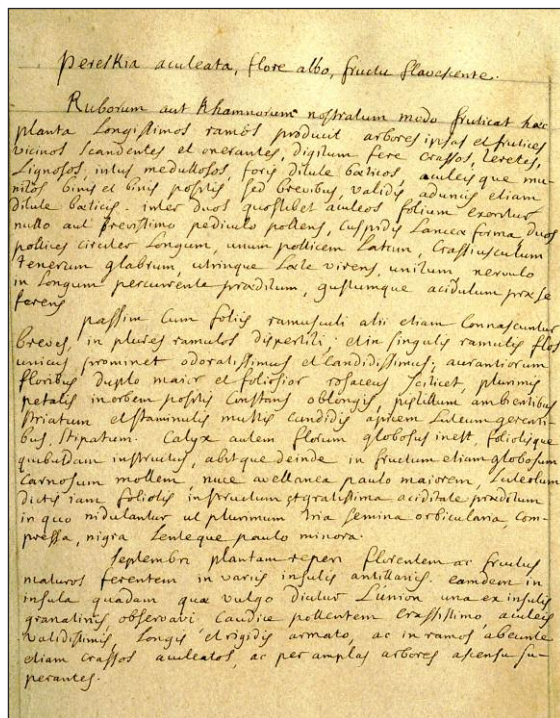 Pereskia aculeata, flore albo, fructu flavescente.
Ruborum aut Rhamnorum nostratum modo fruticat haec
planta Longissimos ramos producit arbores ipsas et frutices
vicinos scandentes et onerantes, digitum fere crassos, teretes,
Lignosos, intus medullosos, foris dilute bœticos, aculeisque mu-
nitos binis et binis positis, sed brevibus, validis aduncis etiam
dilute bœticis. inter duos quoslibet aculeos folium exoritur
nullo aut brevissimo pediculo pollens, cuspidis Lanceæ forma, duos
pollices circiter Longum, unum pollicem Latum, Crassiusculum
tenerum glabrum, utrinque Læte virens, unico, nervulo
in Longum percurrente præditum, gustumque acidulum præ se
ferens
passim Cum foliis ramusculi alii etiam Connascuntur
breves, in plures ramulos dispertiti; et in singulis ramulis flos
unicus prominet odoratissimus et Candidissimus; aurantiorum
floribus duplo maior et foliosior rosaceus scilicet, plurimis
petalis in orbem positis Constans oblongis, pistillum ambientibus
striatum et staminulis multis candidis apicem Luteum gerenti-
bus, stipatum. Calyx autem florum globosus inest, foliolisque
quibusdam instructus, abitque deinde in fructum etiam globosum
Carnosum mollem, nuce avellanea paulo maiorem, Luteolum
dictis iam foliolis instructum et gratissima aciditate præditum
in quo nidulantur ut plurimum tria semina orbicularia, com-
pressa, nigra Lenteque paulo minora.
Septembri plantam reperi florentem ac fructus
maturos ferentem in variis insulis antillanis. eamdem in
insula quadam quæ vulgo dicitur L'union una ex insulis
granatinis, observavi. Caudice pollentem Crassissimo, aculeis
validissimis, Longis et rigidis armato, ac in ramos abeunte
etiam crassos aculeatos, ac per amplas arbores ascensu su-
perantes.